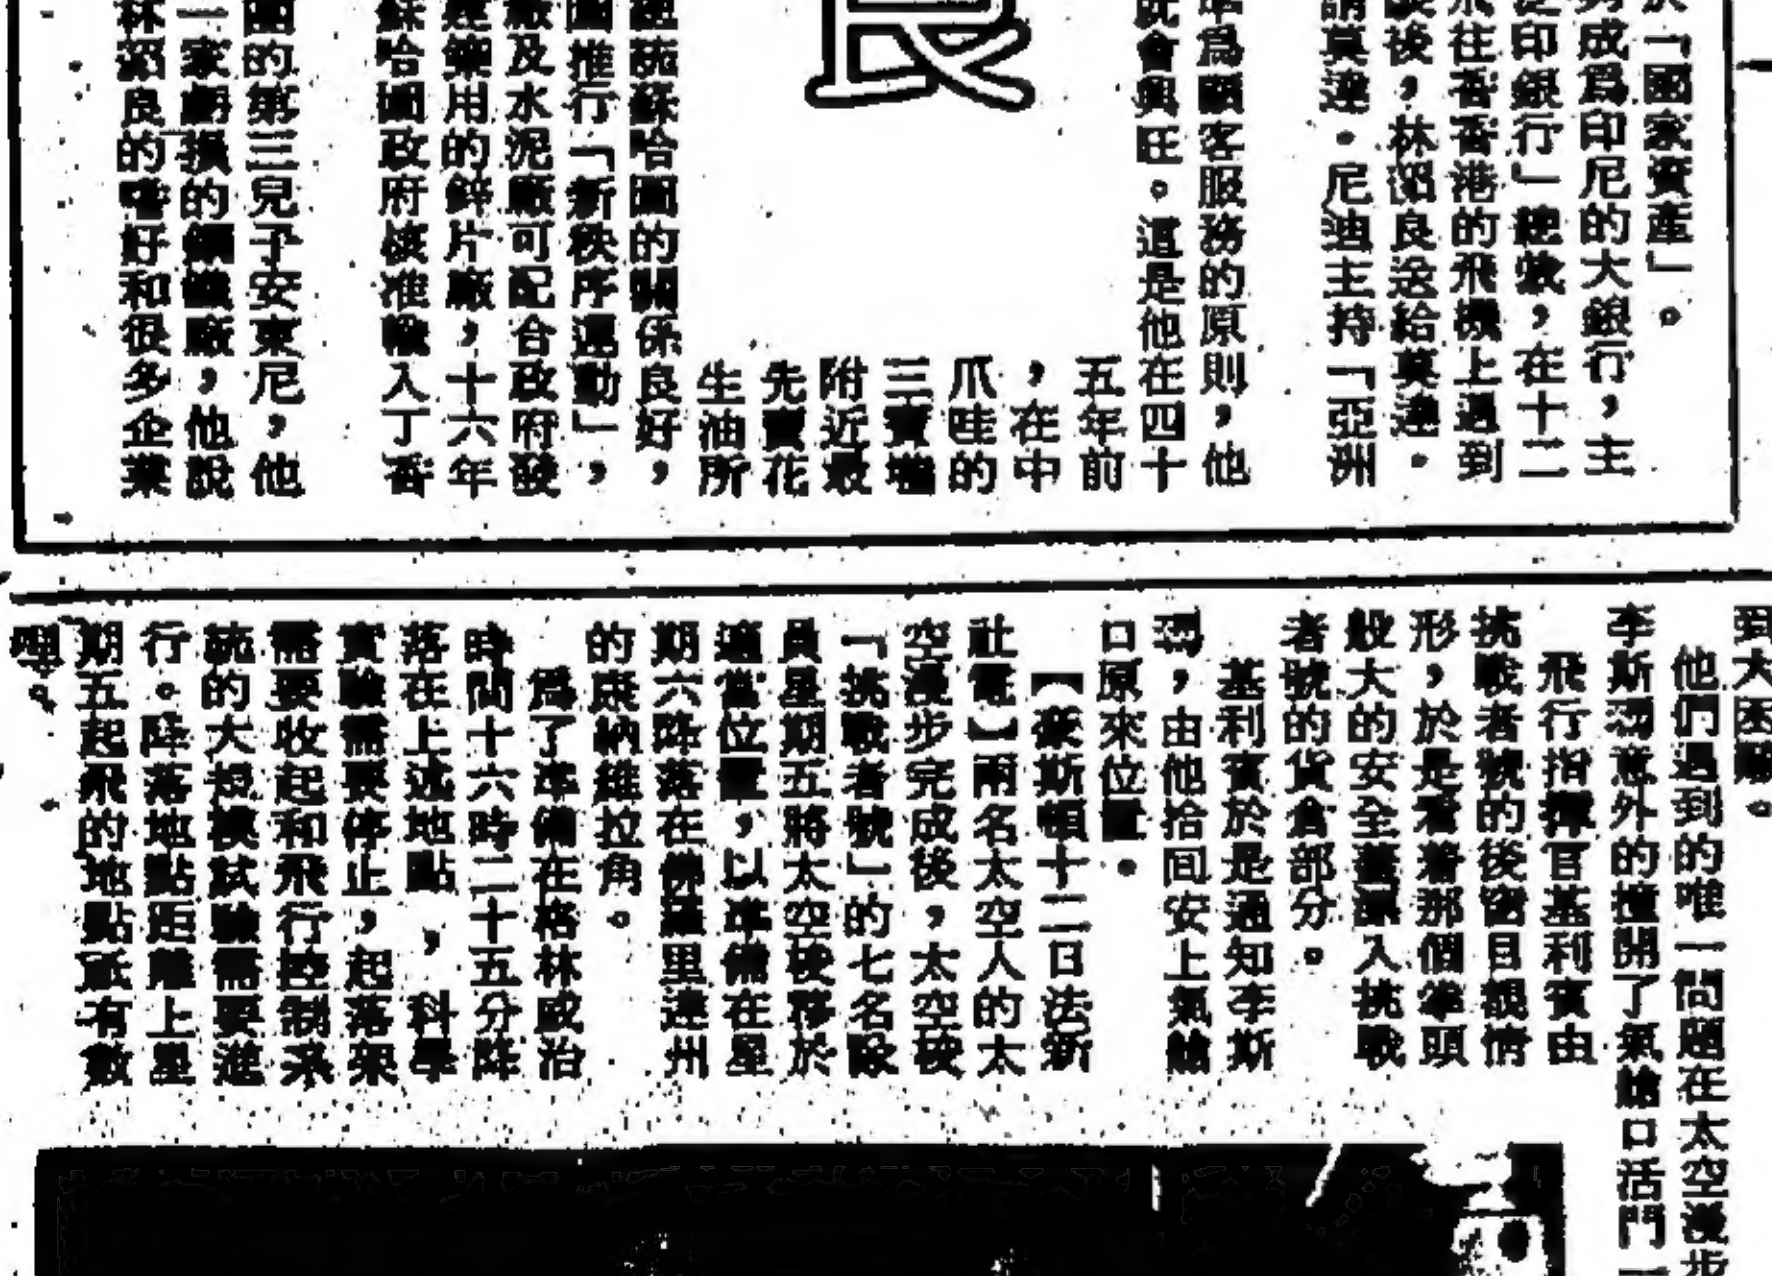 「國家資產」。
成爲印尼的大銀行，主
印銀行」總裁，在十二
往香港的飛機上遇到
後，林紹良送給莫達。
莫達。尼迪主持「亞洲
爲顧客服務的原則，他
會興旺。這是他在四十
五年前
，在中
爪哇的
三寶壟
附近最
先賣花
生油所
良
蘇哈圖的關係良好，
圖推行「新秩序運動」，
廠及水泥廠可配合政府發
用的鋅片廠，十六年
蘇哈圖政府核准輸入丁香
的第三兒子安東尼，他
一家虧損的鋼鐵廠，他說
林紹良的嗜好和很多企業
到大困難。
他們遇到的唯一問題在太空漫步
李斯瑪意外的撞開了氣艙口活門
飛行指揮官基利賓由
挑戰者號的後窗目覩情
形，於是看着那個拳頭
般大的安全蓋漂入挑戰
者號的貨倉部分。
基利賓於是通知李斯
瑪，由他拾回安上氣艙
口原來位置。
【豪斯頓十二日法新
社電】兩名太空人的太
空漫步完成後，太空梭
「挑戰者號」的七名隊
員星期五將太空梭移於
適當位置，以準備在星
期六降落在佛羅里達州
的康納維拉角。
爲了準備在格林威治
時間十六時二十五分降
落在上述地點，科學
實驗需要停止，起落架
需要收起和飛行控制系
統的大規模試驗需要進
行。降落地點距離上星
期五起飛的地點祇有數
哩。